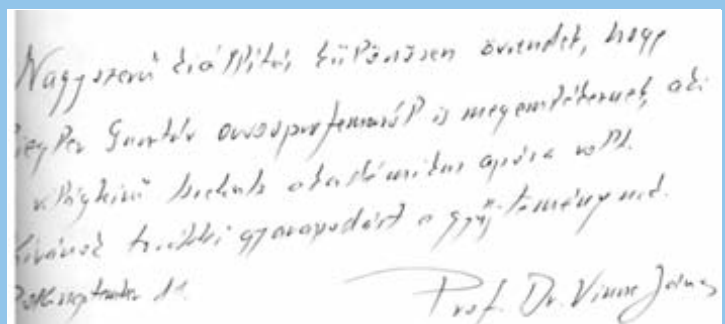 Nagyszerű kiállítás, különösen örvendek, hogy
Ziegler Gusztáv orvosprofesszorról is megemlékeznek, aki
világhírű akadémikus apósa volt.
Kívánok további gyarapodást a gyűjteménynek.
september 11
Prof. Dr. János